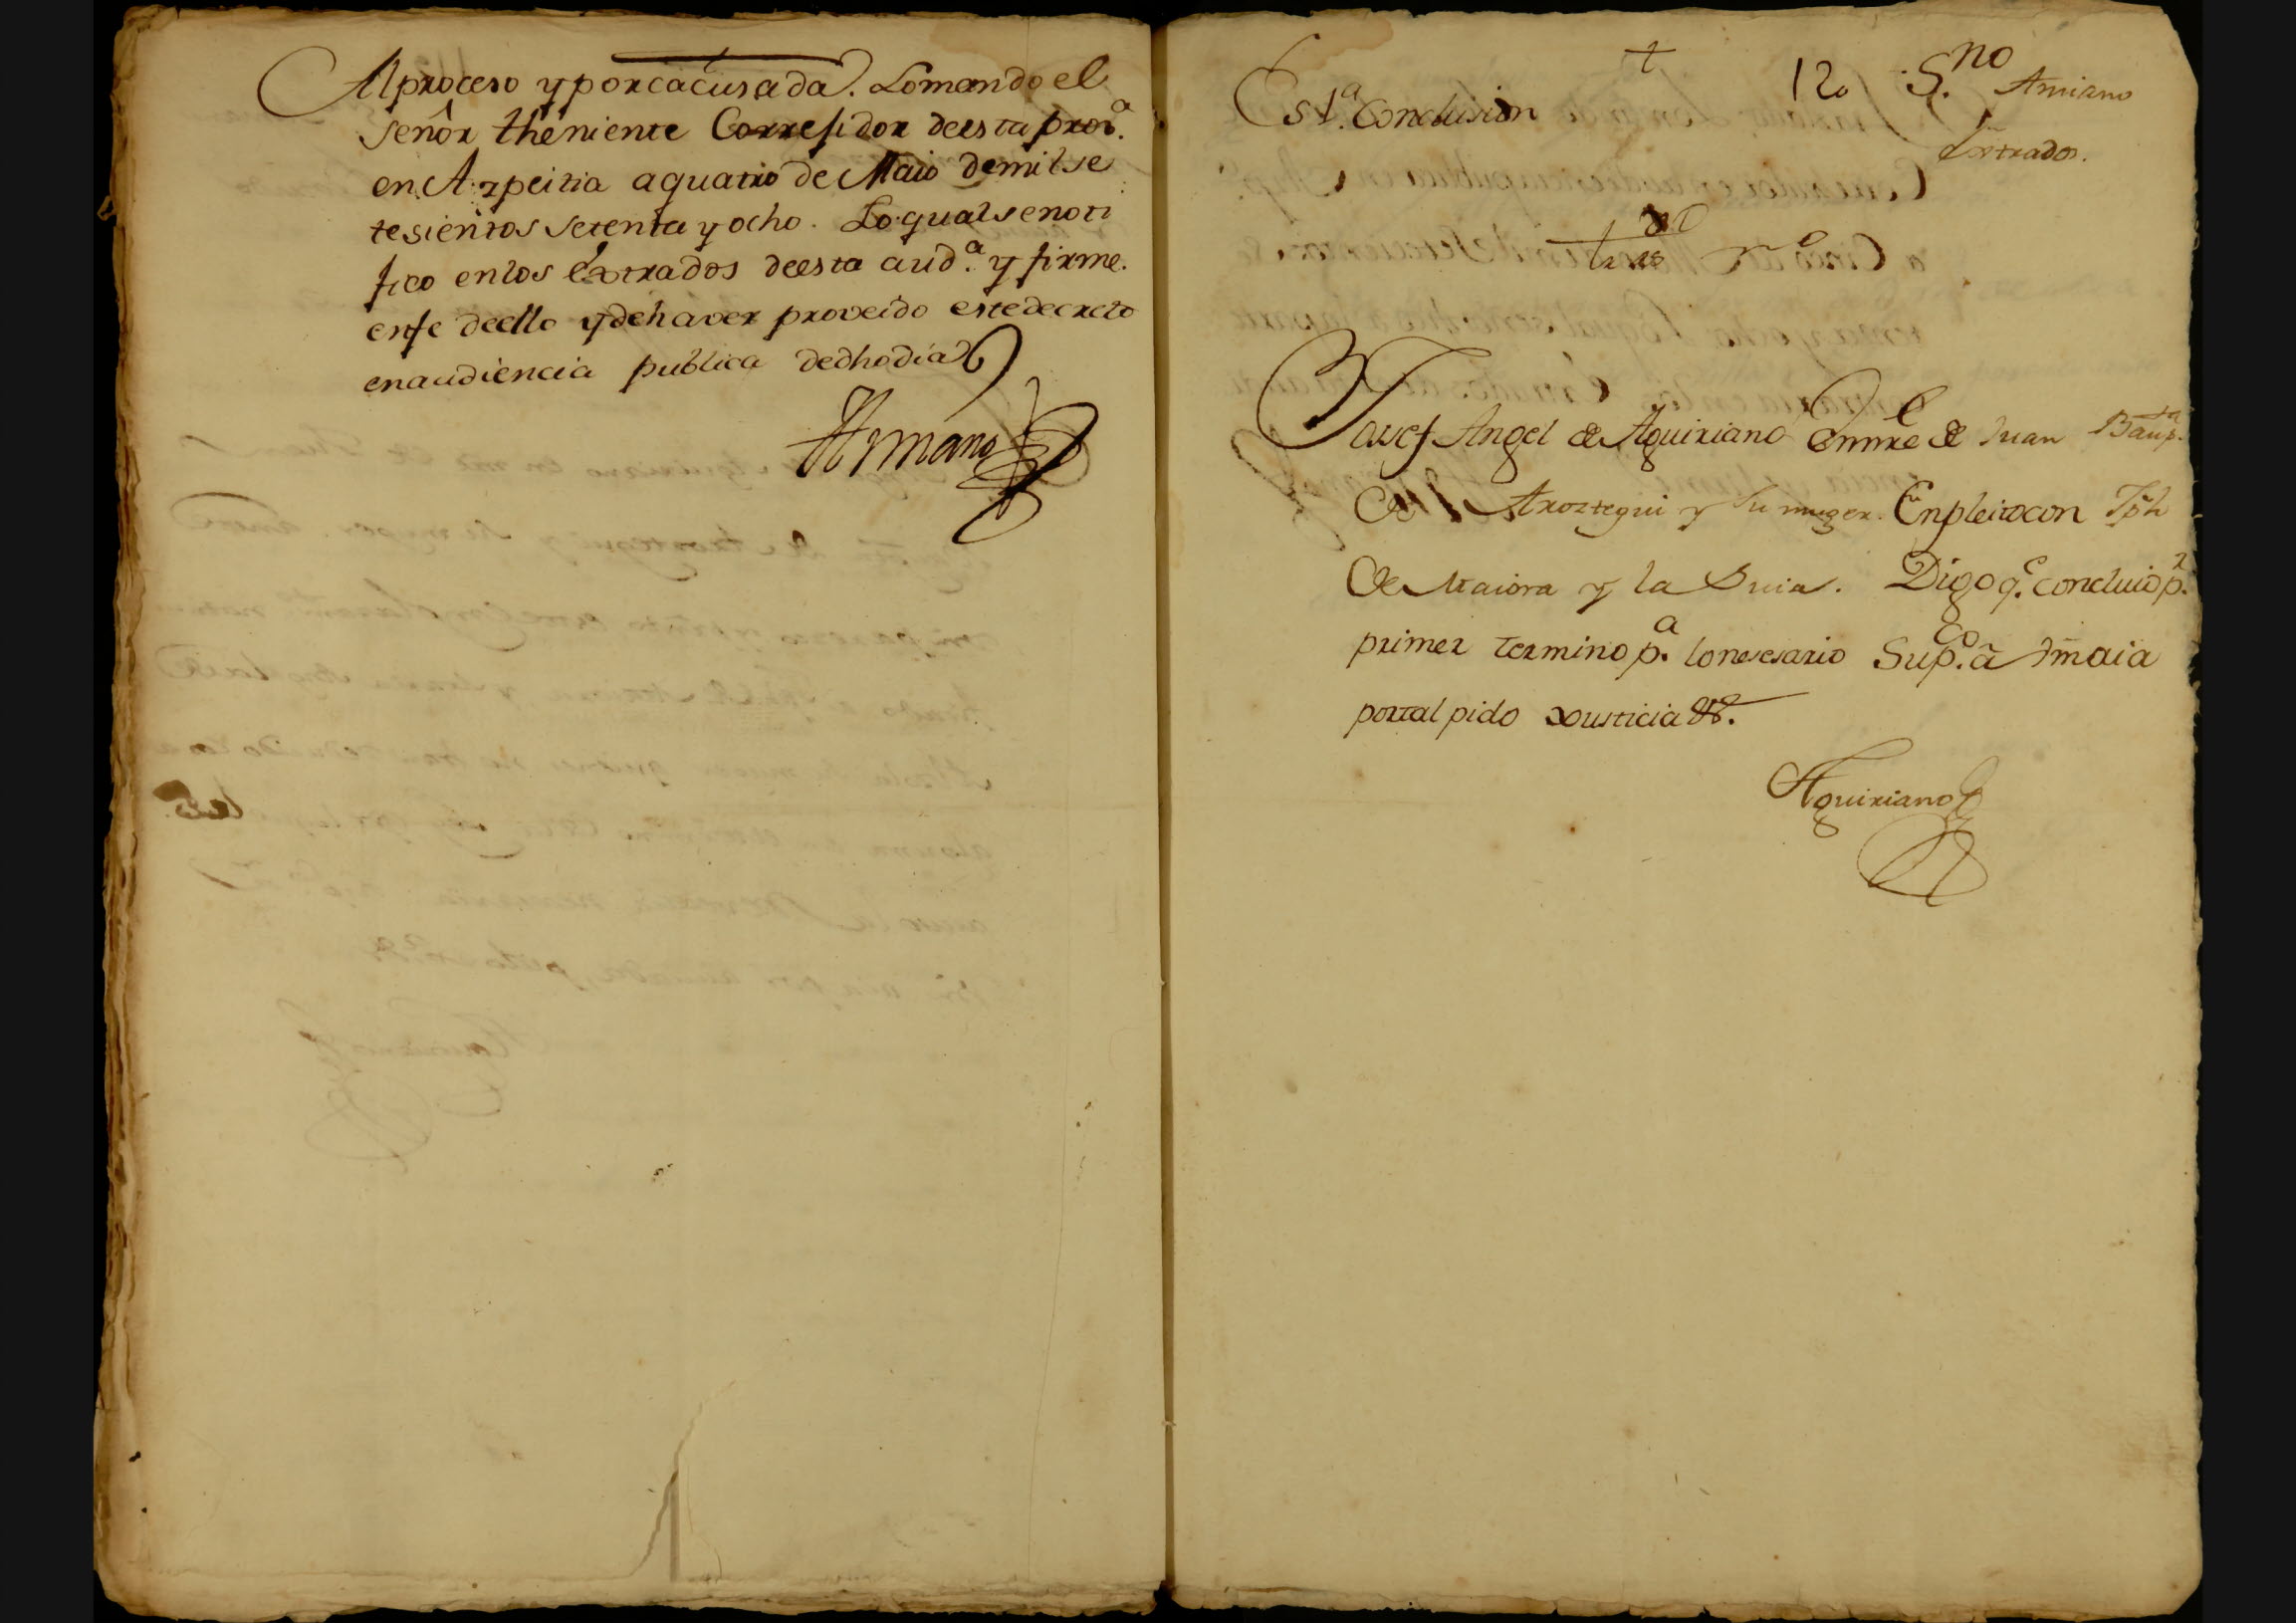 Al proceso y por acusada. Lo mando el
señor theniente Corregidor de esta prov.ª
en Azpeitia a quatro de Maio de mil se
tesientos setenta y ocho. Lo qual se noti
fico en los Extrados de esta aud.ª y firme.
en fe de ello y de haver proveido este decreto
en audiencia publica de dho dia
Amiano
+
12
S.no Amiano
Extrados.
Est.ª Conclusion
Josef Angel de Aguiriano En nre de Juan Baup.ta
de Aroztegui y su muger. En pleito con Jph
de Maiora y la Suia. Digo q.e concluio p.r
primer termino p.a lo nesesario Sup.co a Vm aia
por tal pido Justicia &.
Aguiriano